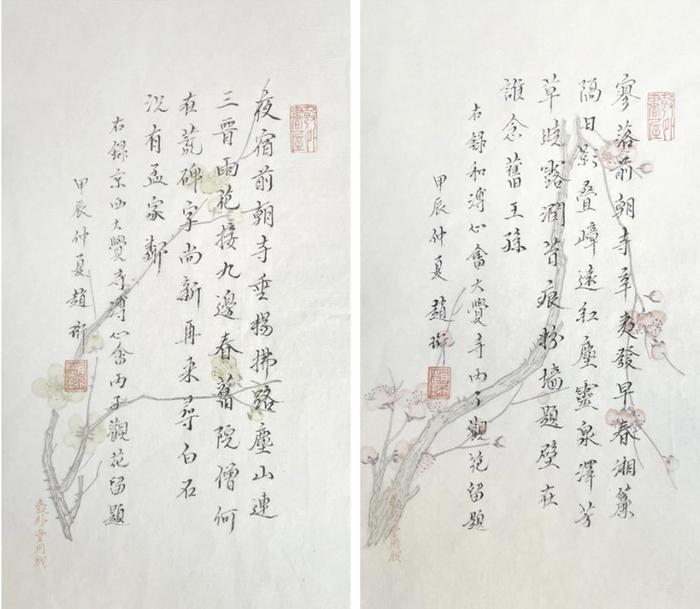 夜宿前朝寺垂楊拂路塵山連
三晉雨花接九邊春舊院僧何
在荒碑字尚新再來尋白石
況有孟家鄰
右錄京西大覺寺溥心畬丙子觀花留題
甲辰仲夏趙珩
寥落前朝寺辛夷發早春湘簾
隔日影疊嶂遠紅塵靈泉澤芳
草曉露潤苔痕粉墻題壁在
誰念舊王孫
右錄和溥心畬大覺寺丙子觀花留題
甲辰仲夏趙珩